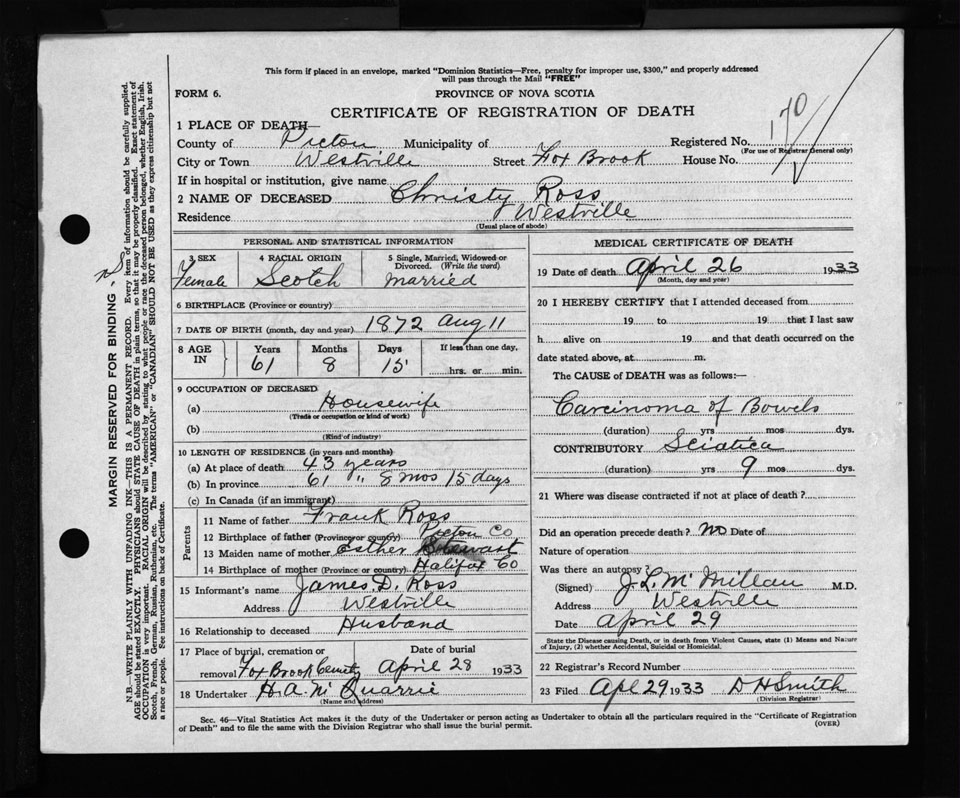 This form if placed in an envelope, marked "Dominion Statistics—Free, penalty for improper use, $300," and properly addressed
will pass through the Mail "FREE"
FORM 6.
PROVINCE OF NOVA SCOTIA
CERTIFICATE OF REGISTRATION OF DEATH
1 PLACE OF DEATH—
County of Picton Municipality of Registered No. 170
(For use of Registrar General only)
City or Town Westville Street Fox Brook House No.
If in hospital or institution, give name
2 NAME OF DECEASED Christy Ross
Residence Westville
(Usual place of abode)
PERSONAL AND STATISTICAL INFORMATION
3 SEX
Female
4 RACIAL ORIGIN
Scotch
5 Single, Married, Widowed or
Divorced. (Write the word)
married
6 BIRTHPLACE (Province or country)
7 DATE OF BIRTH (month, day and year) 1872 Aug 11
8 AGE IN
Years Months Days If less than one day,
61 8 15 hrs. or min.
9 OCCUPATION OF DECEASED
(a) Housewife
(Trade or occupation or kind of work)
(b)
(Kind of industry)
10 LENGTH OF RESIDENCE (in years and months)
(a) At place of death 43 years
(b) In province 61 " 8 mos 15 days
(c) In Canada (if an immigrant)
Parents
11 Name of father Frank Ross
12 Birthplace of father (Province or country) Picton Co
13 Maiden name of mother Esther Stewart
14 Birthplace of mother (Province or country) Halifax Co
15 Informant's name James D. Ross
Address Westville
16 Relationship to deceased Husband
17 Place of burial, cremation or Date of burial
removal Fox Brook Cemetry April 28 1933
18 Undertaker H. A. Mc Quarrie
(Name and address)
MEDICAL CERTIFICATE OF DEATH
19 Date of death April 26 1933
(Month, day and year)
20 I HEREBY CERTIFY that I attended deceased from
19 to 19 that I last saw
h alive on 19 and that death occurred on the
date stated above, at m.
The CAUSE of DEATH was as follows:—
Carcinoma of Bowels
(duration) yrs mos dys.
CONTRIBUTORY Sciatica
(duration) yrs 9 mos dys.
21 Where was disease contracted if not at place of death?
Did an operation precede death? No Date of
Nature of operation
Was there an autopsy?
(Signed) J. L. McMillan M.D.
Address Westville
Date April 29
State the Disease causing Death, or in death from Violent Causes, state (1) Means and Nature
of Injury, (2) whether Accidental, Suicidal or Homicidal.
22 Registrar's Record Number
23 Filed Apl 29 1933 D H Smith
(Division Registrar)
Sec. 46—Vital Statistics Act makes it the duty of the Undertaker or person acting as Undertaker to obtain all the particulars required in the "Certificate of Registration
of Death" and to file the same with the Division Registrar who shall issue the burial permit.
(OVER)
MARGIN RESERVED FOR BINDING
N.B.—WRITE PLAINLY WITH UNFADING INK—THIS IS A PERMANENT RECORD. Every item of information should be carefully supplied.
AGE should be stated EXACTLY. PHYSICIANS should STATE CAUSE OF DEATH in plain terms, so that it may be properly classified. Exact statement of
OCCUPATION is very important. RACIAL ORIGIN will be described by stating to what people or race the deceased person belonged, whether English, Irish,
Scotch, French, German, Russian, Ruthenian, etc. The terms "AMERICAN" or "CANADIAN" SHOULD NOT BE USED as they express citizenship but not
a race or people. See instructions on back of Certificate.